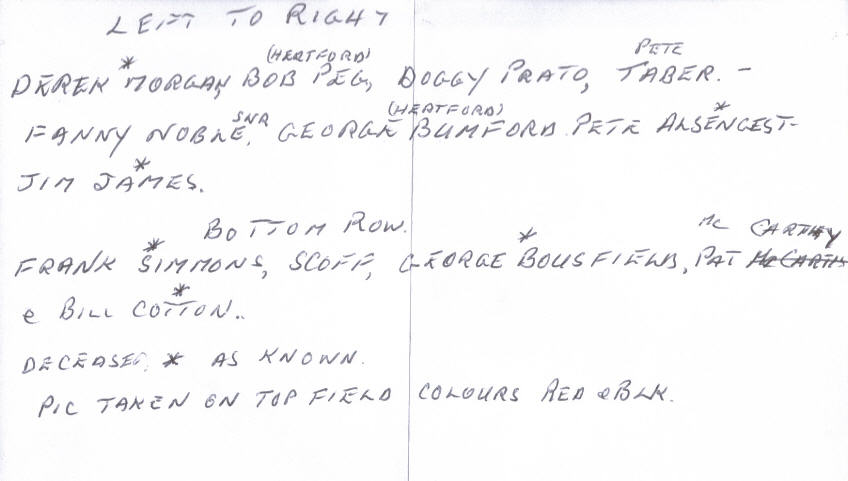 LEFT TO RIGHT
(HERTFORD) PETE
DEREK * MORGAN, BOB PEG, DOGGY PRATO, TABER. -
SNR (HERTFORD)
FANNY NOBLE, GEORGE BUMFORD. PETE ALSENGEST- *
JIM JAMES. *
BOTTOM ROW.
MC CARTHY
FRANK SIMMONS, * SCOFF, GEORGE BOUSFIELD, * PAT MCCARTH
e BILL COTTON.. *
DECEASED. * AS KNOWN.
PIC TAKEN ON TOP FIELD COLOURS RED e BLK.